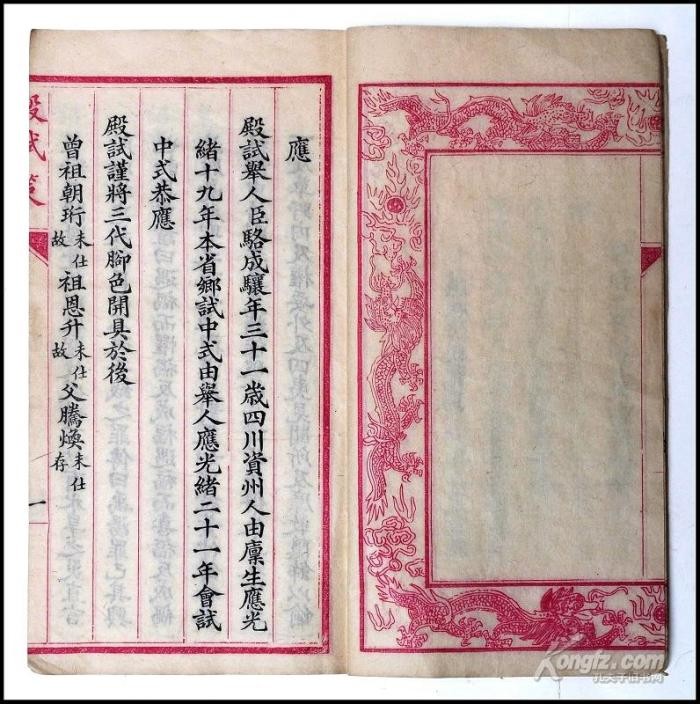 應
殿試舉人臣駱成驤年三十一歲四川資州人由廩生應光
緒十九年本省鄉試中式由舉人應光緒二十一年會試
中式恭應
殿試謹將三代腳色開具於後
曾祖朝珩未仕故 祖恩升未仕故 父騰煥未仕存
殿試策
一
Kongfz.com
孔夫子旧书网